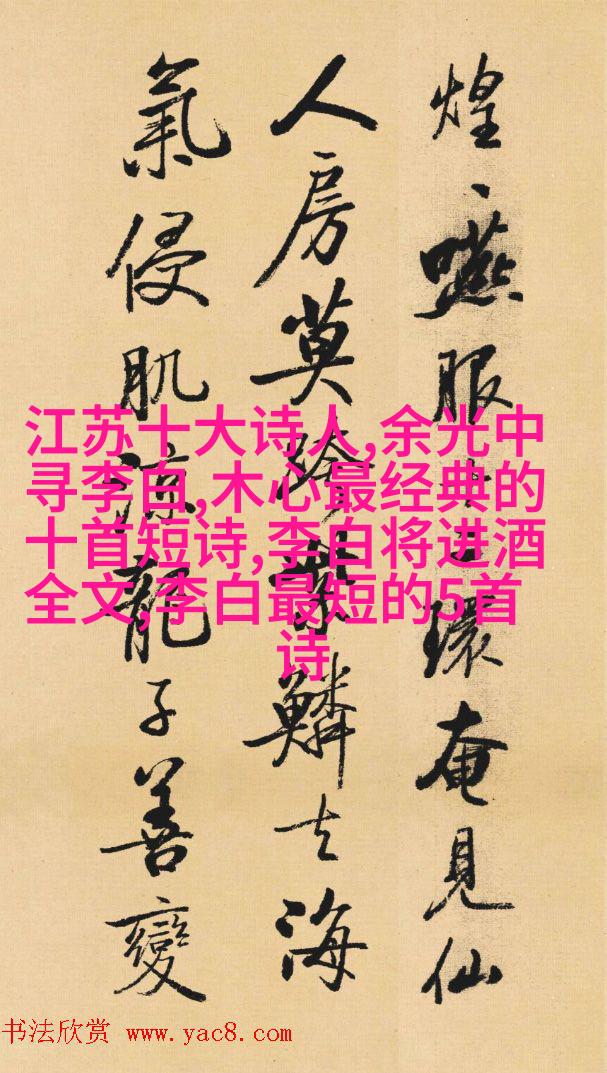 煌〻嚥服十二環奄見仙
人房莫跨紫鱗去海
氣侵肌涼龍子善變
江苏十大诗人,余光中
寻李白,木心最经典的
十首短诗,李白将进酒
全文,李白最短的5首
诗
书法欣赏 www.yac8.com